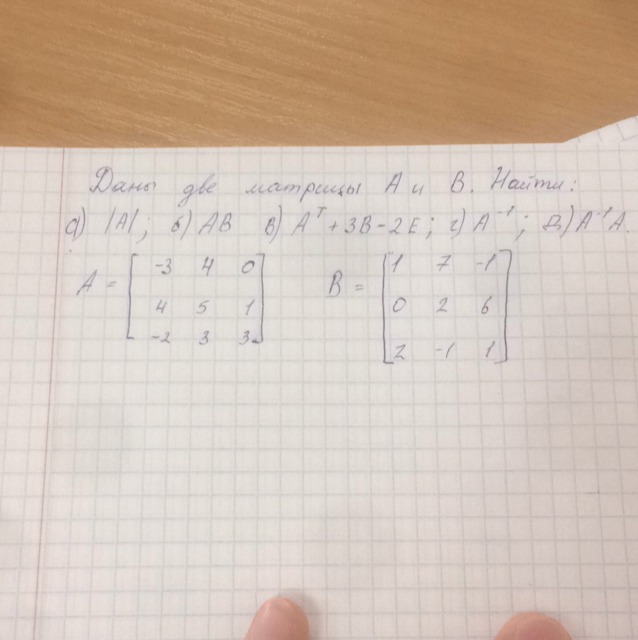 Даны две матрицы A и B. Найти:
а) |A|; б) AB в) Aᵀ + 3B - 2E; г) A⁻¹; д) A⁻¹A.
A = [-3 4 0] B = [1 7 -1]
4 5 1 0 2 6
-2 3 3 2 -1 1